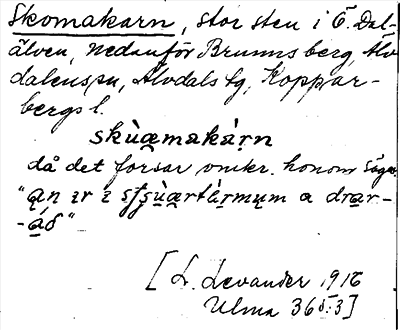 Skomakarn, stor sten i Ö. Dal-
älven, nedanför Brunnsberg, Älv
dalens sn, Älvdals tg, Koppar-
bergs l.
skùa̤makáṛn
då det forsar omkr. honom säges
"a̤n ɪr i
a draṛ-
-a̤ó"
[L. Levander 1916
Ulma 36 5:3]